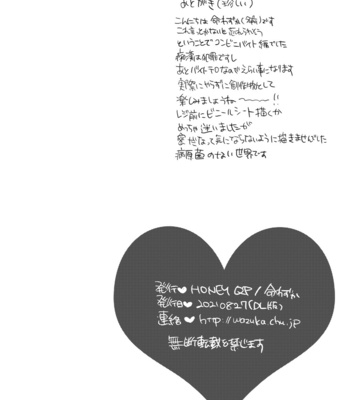 あとがき(珍しい)
こんにちは 命わずか(猫)です
これを止めないと忘れられそう
ということでコンビニバイト編でした
痴漢は犯罪ですし
あとバイトテロなのでえらい事になります
実際にやらずに創作物として
楽しみましょうね〜〜〜!!
レジ前にビニールシート描くか
めっちゃ迷いましたが
密だなって気にならないように描きませんでした
病原菌のない世界です
発行♥HONEY QP/命わずか
発行日♥20210827(DL版)
連絡♥http://wazuka.chu.jp
無断転載を禁じます